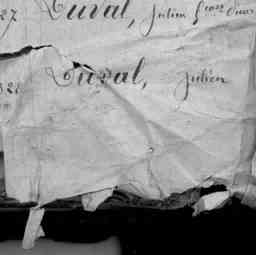 27 Duval, Julien
328 Duval, Julien